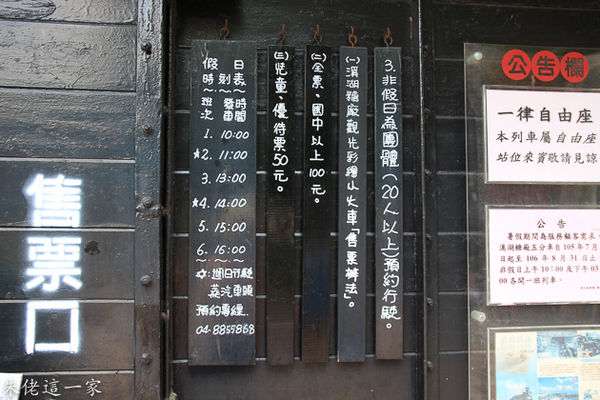 售票口
假日
時刻表
班次 發車時間
1. 10:00
★2. 11:00
3. 13:00
★4. 14:00
5. 15:00
6. 16:00
☆:週日行駛
蒸汽車頭
預約專線
04-8855868
(三)兒童、優待票50元。
(二)全票、國中以上100元。
(一)溪湖糖廠觀光彩繪山火車「售票辦法」。
3.非假日為團體(20人以上)預約行駛。
公告欄
一律自由座
本列車屬自由座
站位來賓敬請見諒
公告
暑假期間為服務顧客需求
溪湖糖廠五分車自105年7月
日起至 106年8月31日止
非假日上午10:00及下午03
:00各開一班列車。
朱佬這一家